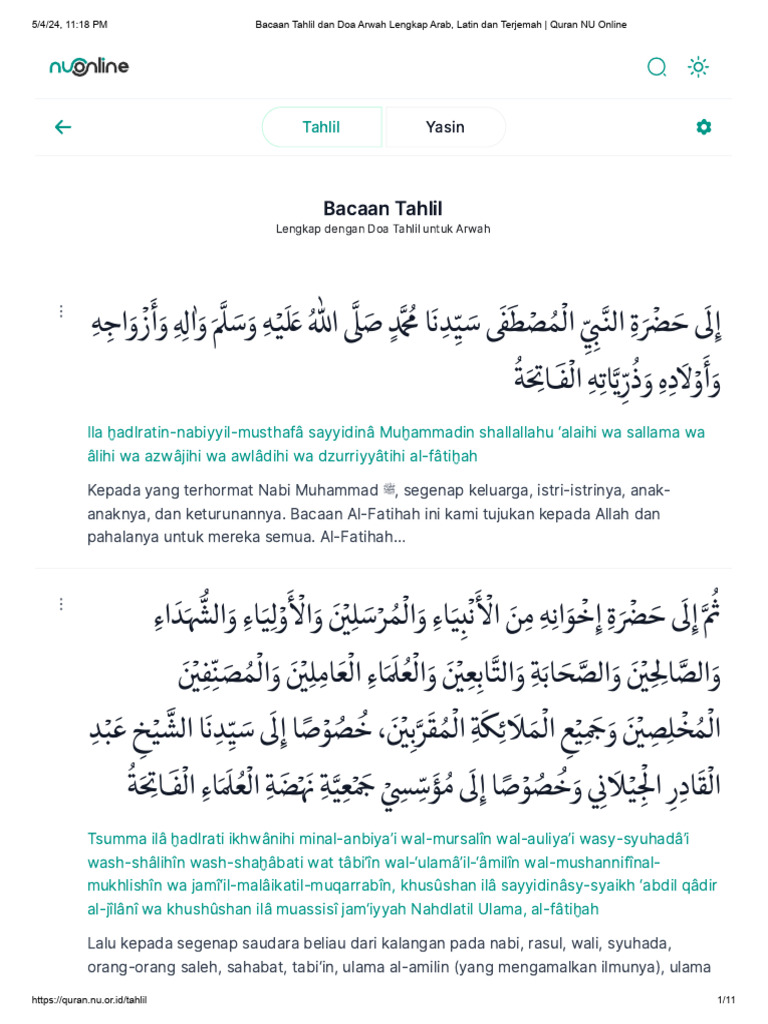 5/4/24, 11:18 PM Bacaan Tahlil dan Doa Arwah Lengkap Arab, Latin dan Terjemah | Quran NU Online
nuonline
Tahlil Yasin
Bacaan Tahlil
Lengkap dengan Doa Tahlil untuk Arwah
إِلَى حَضْرَةِ النَّبِيِّ الْمُصْطَفَى سَيِّدِنَا مُحَمَّدٍ صَلَّى اللهُ عَلَيْهِ وَسَلَّمَ وَاٰلِهِ وَأَزْوَاجِهِ
وَأَوْلَادِهِ وَذُرِّيَّاتِهِ الْفَاتِحَةُ
Ila ḫadlratin-nabiyyil-musthafâ sayyidinâ Muḫammadin shallallahu ‘alaihi wa sallama wa
âlihi wa azwâjihi wa awlâdihi wa dzurriyyâtihi al-fâtiḫah
Kepada yang terhormat Nabi Muhammad ﷺ, segenap keluarga, istri-istrinya, anak-
anaknya, dan keturunannya. Bacaan Al-Fatihah ini kami tujukan kepada Allah dan
pahalanya untuk mereka semua. Al-Fatihah...
ثُمَّ إِلَى حَضْرَةِ إِخْوَانِهِ مِنَ الْأَنْبِيَاءِ وَالْمُرْسَلِيْنَ وَالْأَوْلِيَاءِ وَالشُّهَدَاءِ
وَالصَّالِحِيْنَ وَالصَّحَابَةِ وَالتَّابِعِيْنَ وَالْعُلَمَاءِ الْعَامِلِيْنَ وَالْمُصَنِّفِيْنَ
الْمُخْلِصِيْنَ وَجَمِيْعِ الْمَلَائِكَةِ الْمُقَرَّبِيْنَ، خُصُوْصًا إِلَى سَيِّدِنَا الشَّيْخِ عَبْدِ
الْقَادِرِ الْجِيْلَانِي وَخُصُوْصًا إِلَى مُؤَسِّسِيْ جَمْعِيَّةِ نَهْضَةِ الْعُلَمَاءِ الْفَاتِحَةُ
Tsumma ilâ ḫadlrati ikhwânihi minal-anbiya’i wal-mursalîn wal-auliya’i wasy-syuhadâ’i
wash-shâlihîn wash-shaḫâbati wat tâbi’în wal-‘ulamâ’il-‘âmilîn wal-mushannifînal-
mukhlishîn wa jamî’il-malâikatil-muqarrabîn, khusûshan ilâ sayyidinâsy-syaikh ‘abdil qâdir
al-jîlânî wa khushûshan ilâ muassisî jam’iyyah Nahdlatil Ulama, al-fâtiḫah
Lalu kepada segenap saudara beliau dari kalangan pada nabi, rasul, wali, syuhada,
orang-orang saleh, sahabat, tabi’in, ulama al-amilin (yang mengamalkan ilmunya), ulama
https://quran.nu.or.id/tahlil 1/11